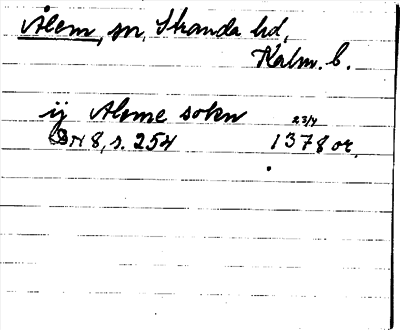 Ålem, sn, Stranda hd,
Kalm. l.
ij Aleme sokn 23/4
BN 8, s. 254 1378 or.